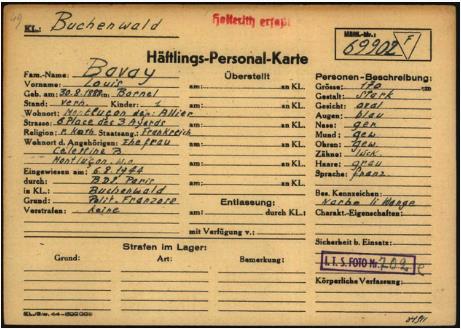 KL.: Buchenwald
Hollerith erfaßt
Häftl.-Nr.:
69902 F
Häftlings-Personal-Karte
Fam.-Name: Bavay
Vorname: Louis
Geb. am: 30.8.1888 in Barnel
Stand: verh. Kinder: 1
Wohnort: Montluçon dep. Allier
Strasse: 6 Place des
Religion: r. kath. Staatsang.: Frankreich
Wohnort d. Angehörigen: Ehefrau
Celestine B.
Montluçon. w.o.
Eingewiesen am: 6.8.1944
durch: BDF Paris
in KL.: Buchenwald
Grund: Polit. Franzose
Vorstrafen: keine
Überstellt
am: an KL.
am: an KL.
am: an KL.
am: an KL.
am: an KL.
am: an KL.
Entlassung:
am: durch KL.:
mit Verfügung v.:
Personen-Beschreibung:
Grösse: 170 cm
Gestalt: stark
Gesicht: oval
Augen: blau
Nase: ger
Mund: gew
Ohren: gew.
Zähne: lück.
Haare: grau
Sprache: franz
Bes. Kennzeichen:
Narbe li Wange
Charakt.-Eigenschaften:
Sicherheit b. Einsatz:
I.T.S. FOTO Nr. 702
Körperliche Verfassung:
Strafen im Lager:
Grund: Art: Bemerkung: